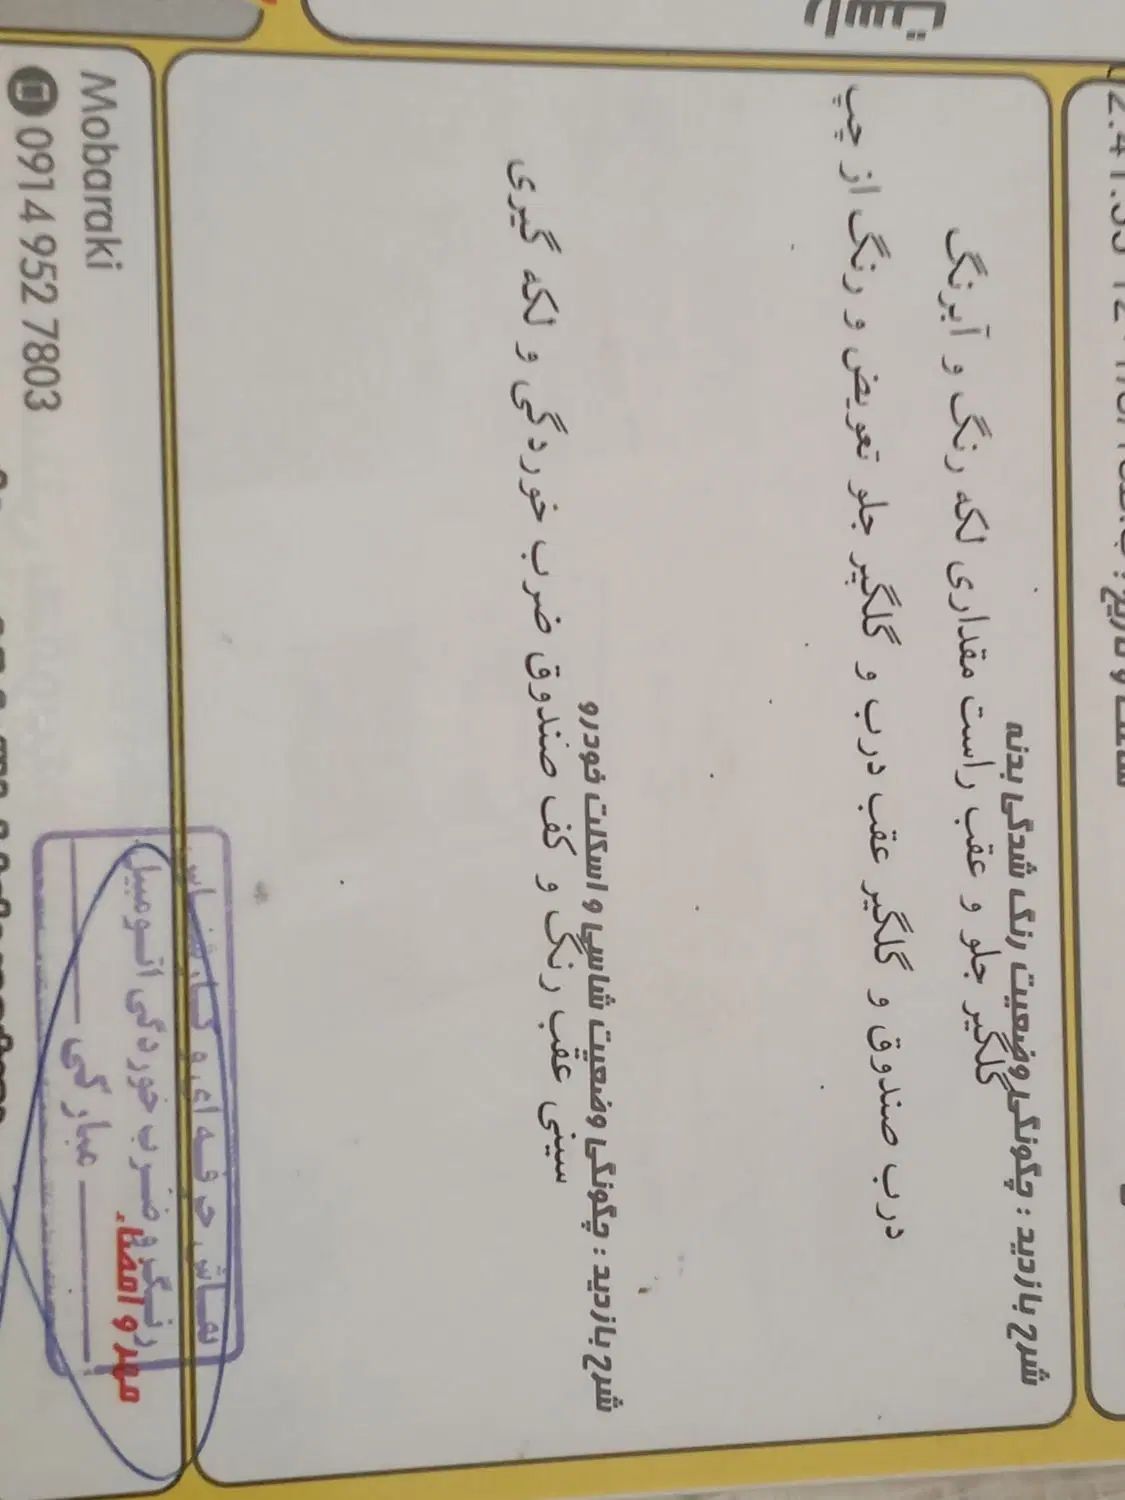 راست
شرح بازدید : چگونگی وضعیت رنگ شدگی بدنه
گلگیر جلو و عقب راست مقداری لکه رنگ و آبرنگ
درب صندوق و گلگیر عقب درب و گلگیر جلو تعویض و رنگ از چپ
شرح بازدید : چگونگی وضعیت شاسی و اسکلت خودرو
سینی عقب رنگ و کف صندوق ضرب خوردگی و لکه گیری
نقاش حرفه ای و کارشناس
رنگ و ضرب خوردگی اتومبیل
مبارکی
مهر و امضاء
Mobaraki
0914 952 7803